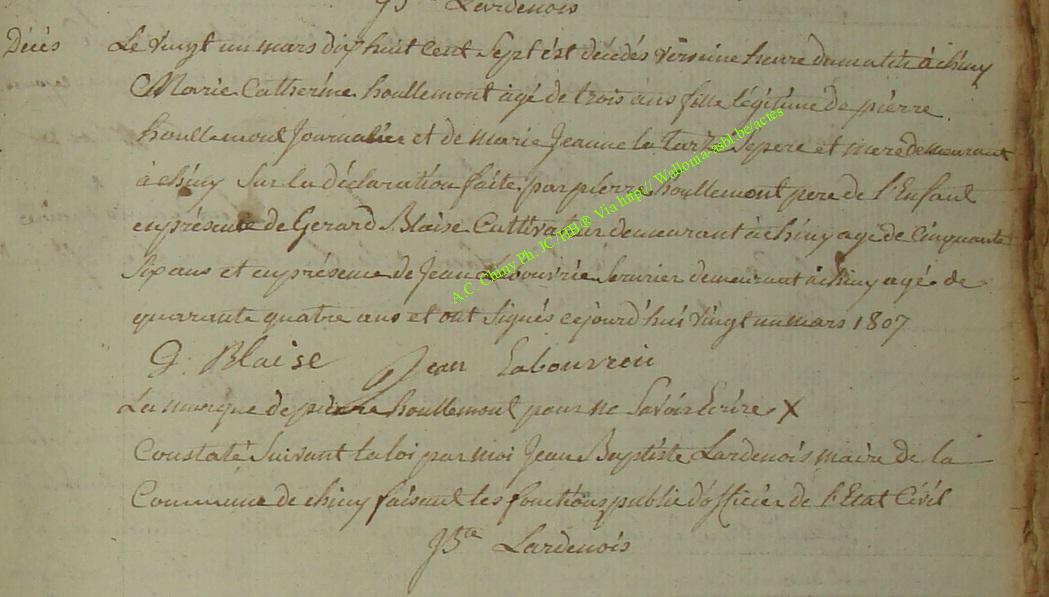 JBte Lardenois
Décés
Le vingt un mars dix huit cent sept ést décédés vers une heure du matité à chiny
Marie Catherine houllemont agé de trois ans fille légitime de pierre
houllemont Journalier et de marie Jeanne la Se pere et mere demeurant
à chiny Sur la déclaration faite par pierre houllemont pere de l'Enfant
en présence de Gerard Blaise Cultivateur demeurant à chiny agé de Cinquante
Six ans et en présence de Jean Labouvrie demeurant à chiny agé de
quarrante quatre ans et ont Signés cejourd'hui vingt un mars 1807
G. Blaise Jean Labouvrie
La marque de pierre houllemont pour ne Savoir Ecrire X
Constaté Suivant la loi par moi Jean Baptiste Lardenois maire de la
Commune de chiny faisant les fonctions public d'officier de l'Etat Civil
JBte Lardenois
A.C. Chiny Ph. JC/HB® Via http// Wallonia-asbl-be/actes